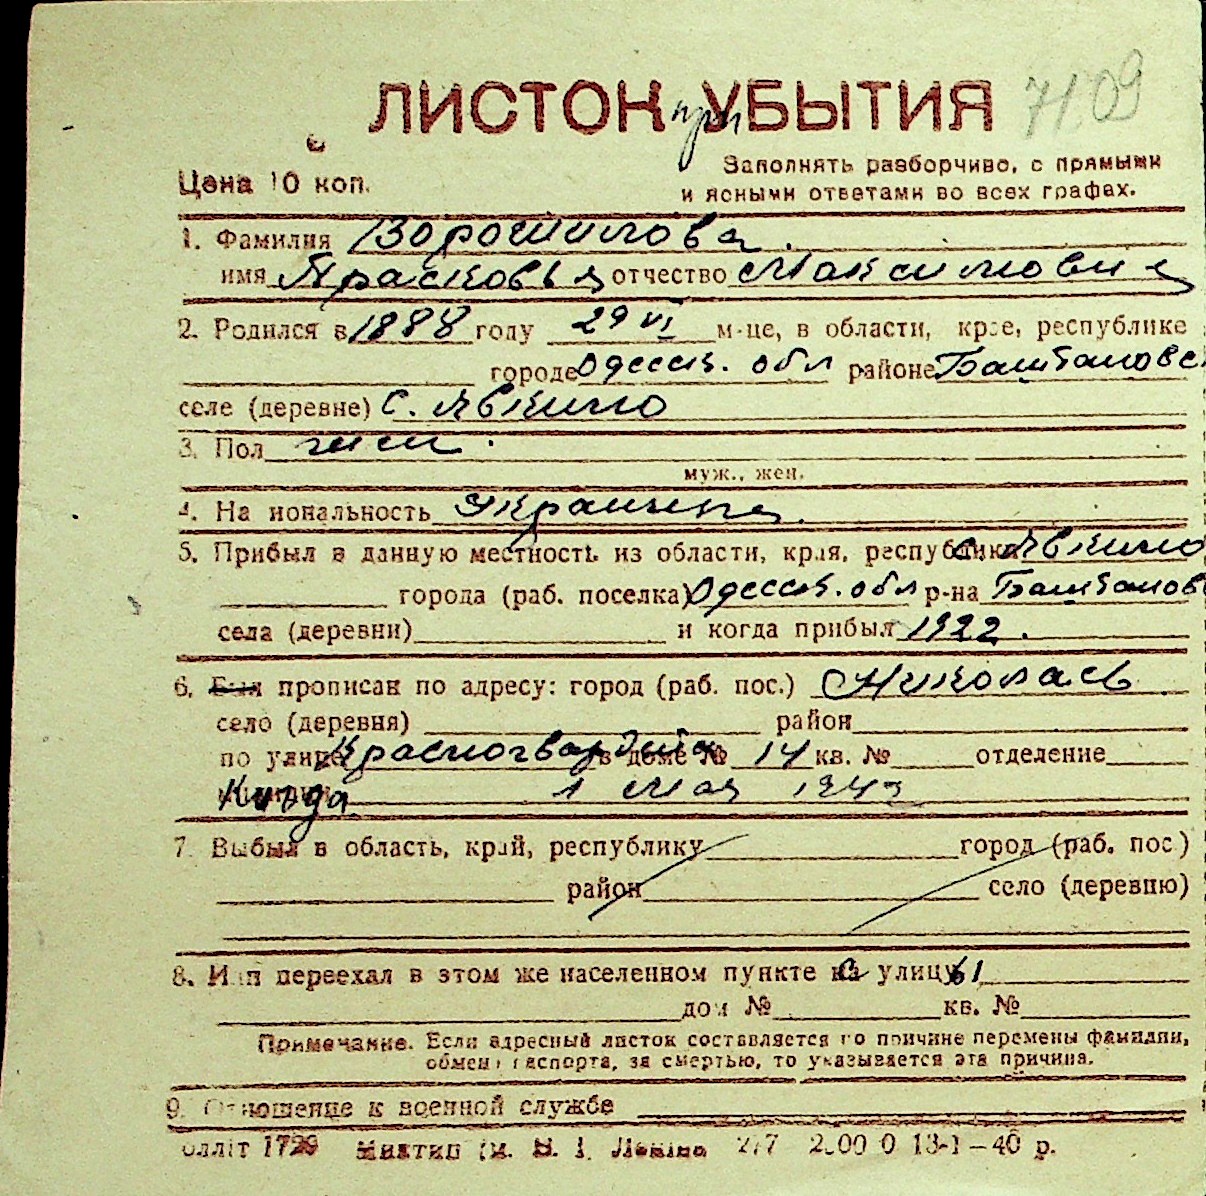 ЛИСТОК УБЫТИЯ 7109
при
Цена 10 коп.
Заполнять разборчиво, с прямыми
и ясными ответами во всех графах.
1. Фамилия Ворошилова.
имя Прасковья отчество Максимовна
2. Родился в 1888 году 29 VI м-це, в области, крае, республике
городе Одесск. обл районе Баштановс
селе (деревне) с. Явкино
3. Пол жен.
муж., жен.
4. На иональность Украинка.
5. Прибыл в данную местность из области, края, республики с. Явкино
города (раб. поселка) Одесск. обл р-на Баштанов
села (деревни) и когда прибыл 1922.
6. Был прописан по адресу: город (раб. пос.) Николаев
село (деревня) район
по улице Красногвардейск в доме № 14 кв. № отделение
Когда 1 мая 1942
7. Выбыл в область, край, республику город (раб. пос)
район село (деревню)
8. Или переехал в этом же населенном пункте на улицу
дом № кв. №
Примечание. Если адресный листок составляется по причине перемены фамилии,
обмена паспорта, за смертью, то указывается эта причина.
9. Отношение к военной службе
1729 Ленина 2/7 13-1-40 р.